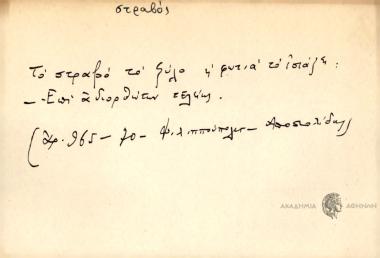 στραβός
Τό στραβό τό ξύλο ἡ φωτιά τό ἰσιάζει:
– Ἐπί ἀδιορθώτων τελείως.
(Ἀρ. 965 – 70 – Φιλιππούπολις – Ἀποστολίδης)
ΑΚΑΔΗΜΙΑ ΑΘΗΝΩΝ